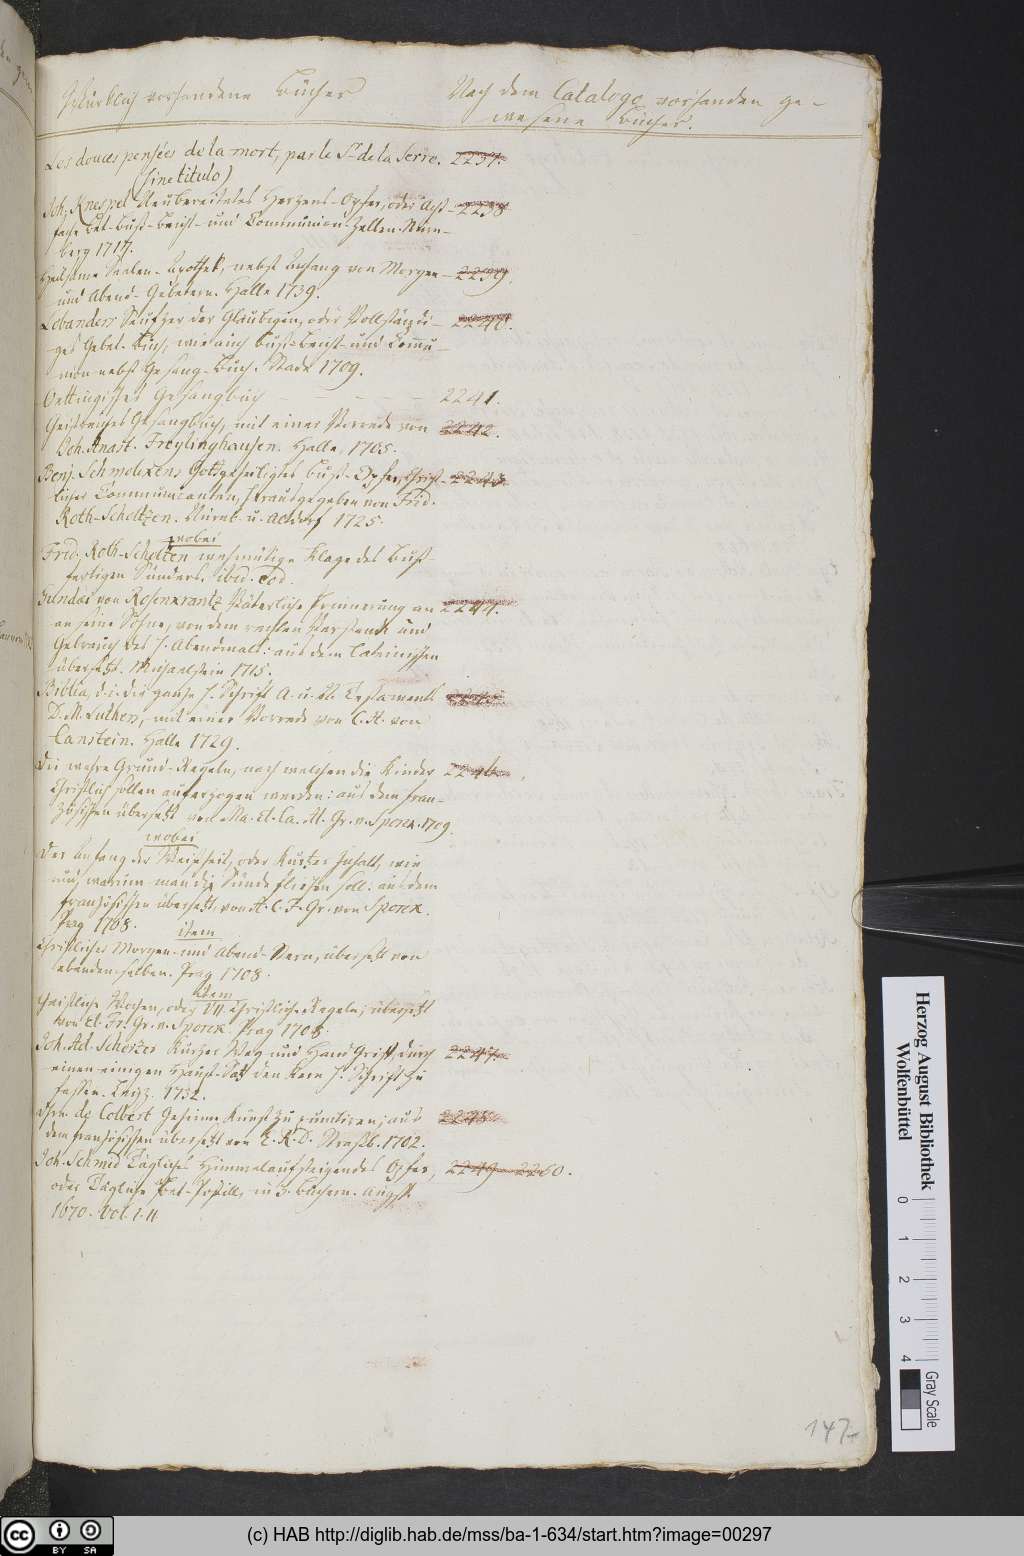 Würklich vorhandene Bücher
Nach dem Catalogo vorhanden ge-
wesene Bücher.
Les douces pensées de la mort, par le Sr. de la Serre. 2237.
(sine titulo)
Joh. Knespel Neubereitetes Herzens-Opfer, oder Acht- 2238
fache Bet-Buß-Beicht- und Communion-Zellen. Nürn-
berg 1717.
Heilsame Seelen-Apothek, nebst Anhang von Morgen- 2239.
und Abend-Gebetern. Halle 1739.
Lebanders Seufzer der Gläubigen, oder Vollständi- 2240.
ges Gebet-Buch, wie auch Buß-Beicht- und Commu-
nion nebst Gesang-Buch. Stade 1709.
Oettingisches Gesangbuch - - - - - 2241.
Geistreiches Gesangbuch, mit einer Vorrede von 2242.
Joh. Anast. Freylinghausen. Halle, 1705.
Benj. Schmolckens Gottgeheiligtes Buß-Opfer, Christ- 2243
licher Communicanten, herausgegeben von Frid.
Roth-Scholtzen. Nürnb. u. Altdorf 1725.
wobei
Frid. Roth-Scholtzen wehmütige Klage des Buß-
fertigen Sünders. ibid. eod.
Holgers von Rosenkrantz Väterliche Erinnerung an 2244.
an seine Söhne, von dem rechten Verstande und
Gebrauch des h. Abendmals: aus dem Lateinischen
übersetzt. Michaelstein 1715.
Biblia, d. i. die ganze h. Schrift A. u. N. Testaments 2245
D. M. Luthers, mit einer Vorrede von C. H. von
Canstein. Halle 1729.
Die wahre Grund-Regeln, nach welchen die Kinder 2246
Christlich sollen auferzogen werden: aus dem fran-
zösischen übersetzt von Ma. El. Ca. Gr. v. Sporck. 1709.
wobei
Der Anfang der Weisheit, oder Kurtzer Inhalt, wie
und warum man die Sünde fliehen soll: aus dem
französischen übersetzt von A. C. F. Gr. von Sporck.
Prag 1708.
item
Christlicher Morgen- und Abend-Stern, übersetzt von
ebenderselben. Prag 1708.
item
Christliche Wochen, oder VII. Christliche Regeln, übersetzt
von El. Fr. Gr. v. Sporck. Prag 1708.
Joh. Ad. Scherzer Kurzer Weg und Hand Griff, durch 2247.
einen einigen Haupt-Satz den Kern h. Schrift zu
fassen. Leipz. 1732.
Hrn. de Colbert Geheime Kunst zu punctiren; aus 2248.
dem französischen übersetzt von C. K. D. Straßb. 1702.
Joh. Schmid Tägliches Himmelaufsteigendes Opfer, 2249. 2250.
oder Tägliche Bet-Postill, in 3. Büchern. Augsp.
1670. Vol. I. II
147
Herzog August Bibliothek
Wolfenbüttel
0 1 2 3 4
Gray Scale
CC BY SA
(c) HAB http://diglib.hab.de/mss/ba-1-634/start.htm?image=00297